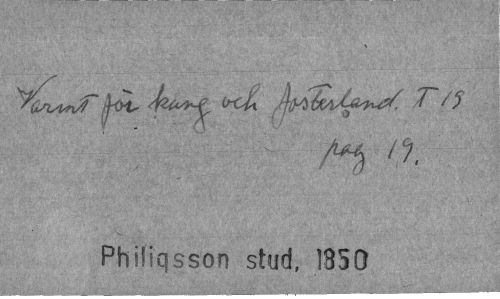 Varmt för kung och fosterland. T 19
pag 19.
Philiqsson stud, 1850